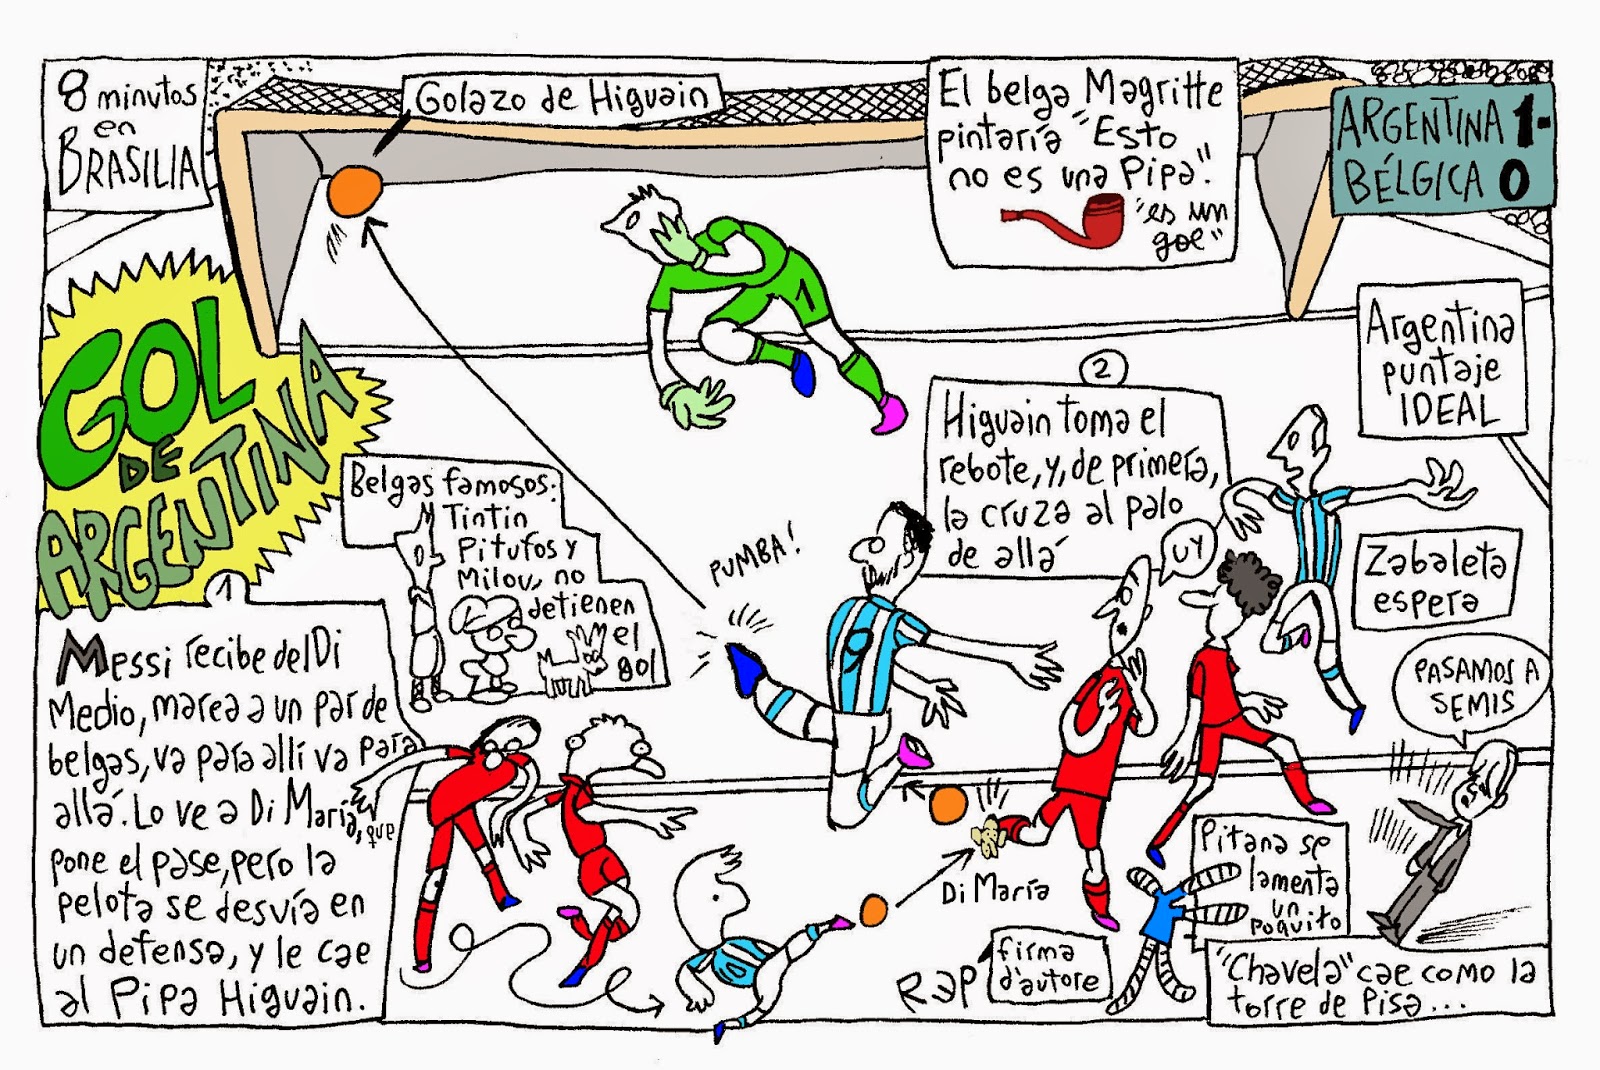 8 minutos
en
BRASILIA
Golazo de Higuain
El belga Magritte
pintaría "Esto
no es una Pipa".
"es un
goe"
ARGENTINA 1-
BÉLGICA 0
GOL
DE
ARGENTINA
Argentina
puntaje
IDEAL
2
Higuain toma el
rebote, y, de primera,
la cruza al palo
de allá
UY
Zabaleta
espera
Belgas famosos:
Tintin
Pitufos y
Milou, no
detienen
el
gol
PUMBA!
9
1
1
Messi recibe del Di
Medio, marea a un par de
belgas, va para allí va para
allá. Lo ve a Di María, que
pone el pase, pero la
pelota se desvía en
un defensa, y le cae
al Pipa Higuain.
PASAMOS A
SEMIS
Di María
10
Pitana se
lamenta
un
poquito
REP
firma
d'autore
"Chavela" cae como la
torre de Pisa...